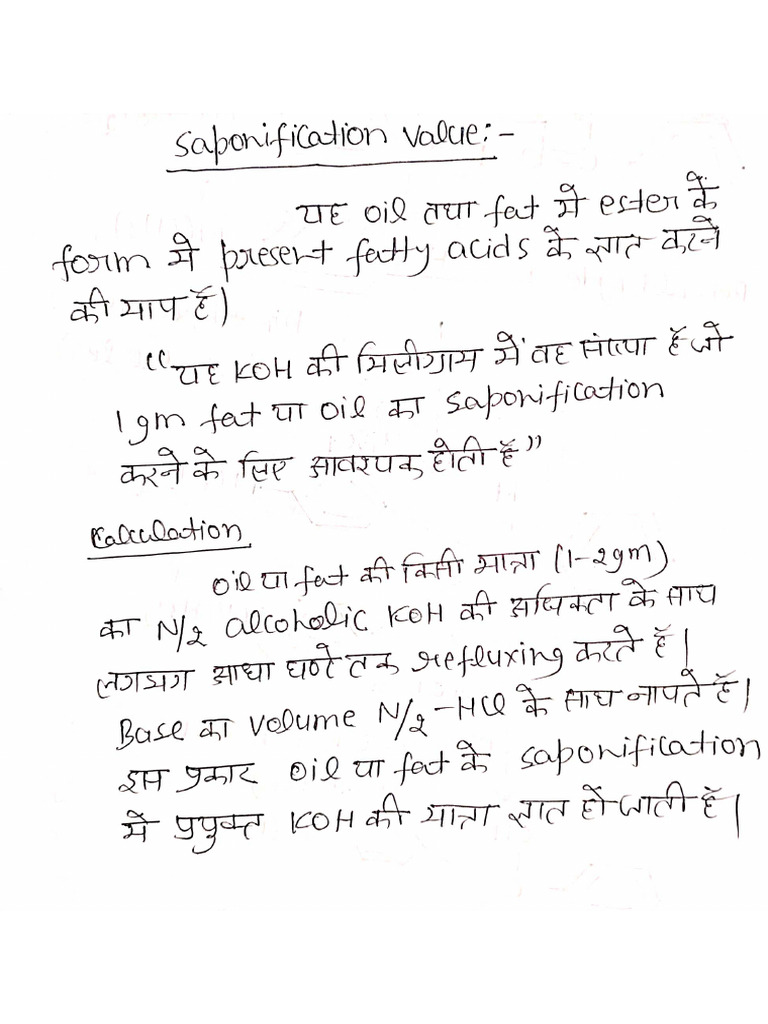 Saponification value:-
यह oil तथा fat में ester के
form में present fatty acids के ज्ञात करने
की माप है)
"यह KOH की मिलीग्राम में वह संख्या है जो
1 gm fat या oil का saponification
करने के लिए आवश्यक होती है"
Calculation
oil या fat की किसी मात्रा (1-2gm)
का N/2 alcoholic KOH की अधिकता के साथ
लगभग आधा घण्टे तक refluxing करते हैं|
Base का volume N/2-HCl के साथ नापते हैं|
इस प्रकार oil या fat के saponification
में प्रयुक्त KOH की मात्रा ज्ञात हो जाती है|